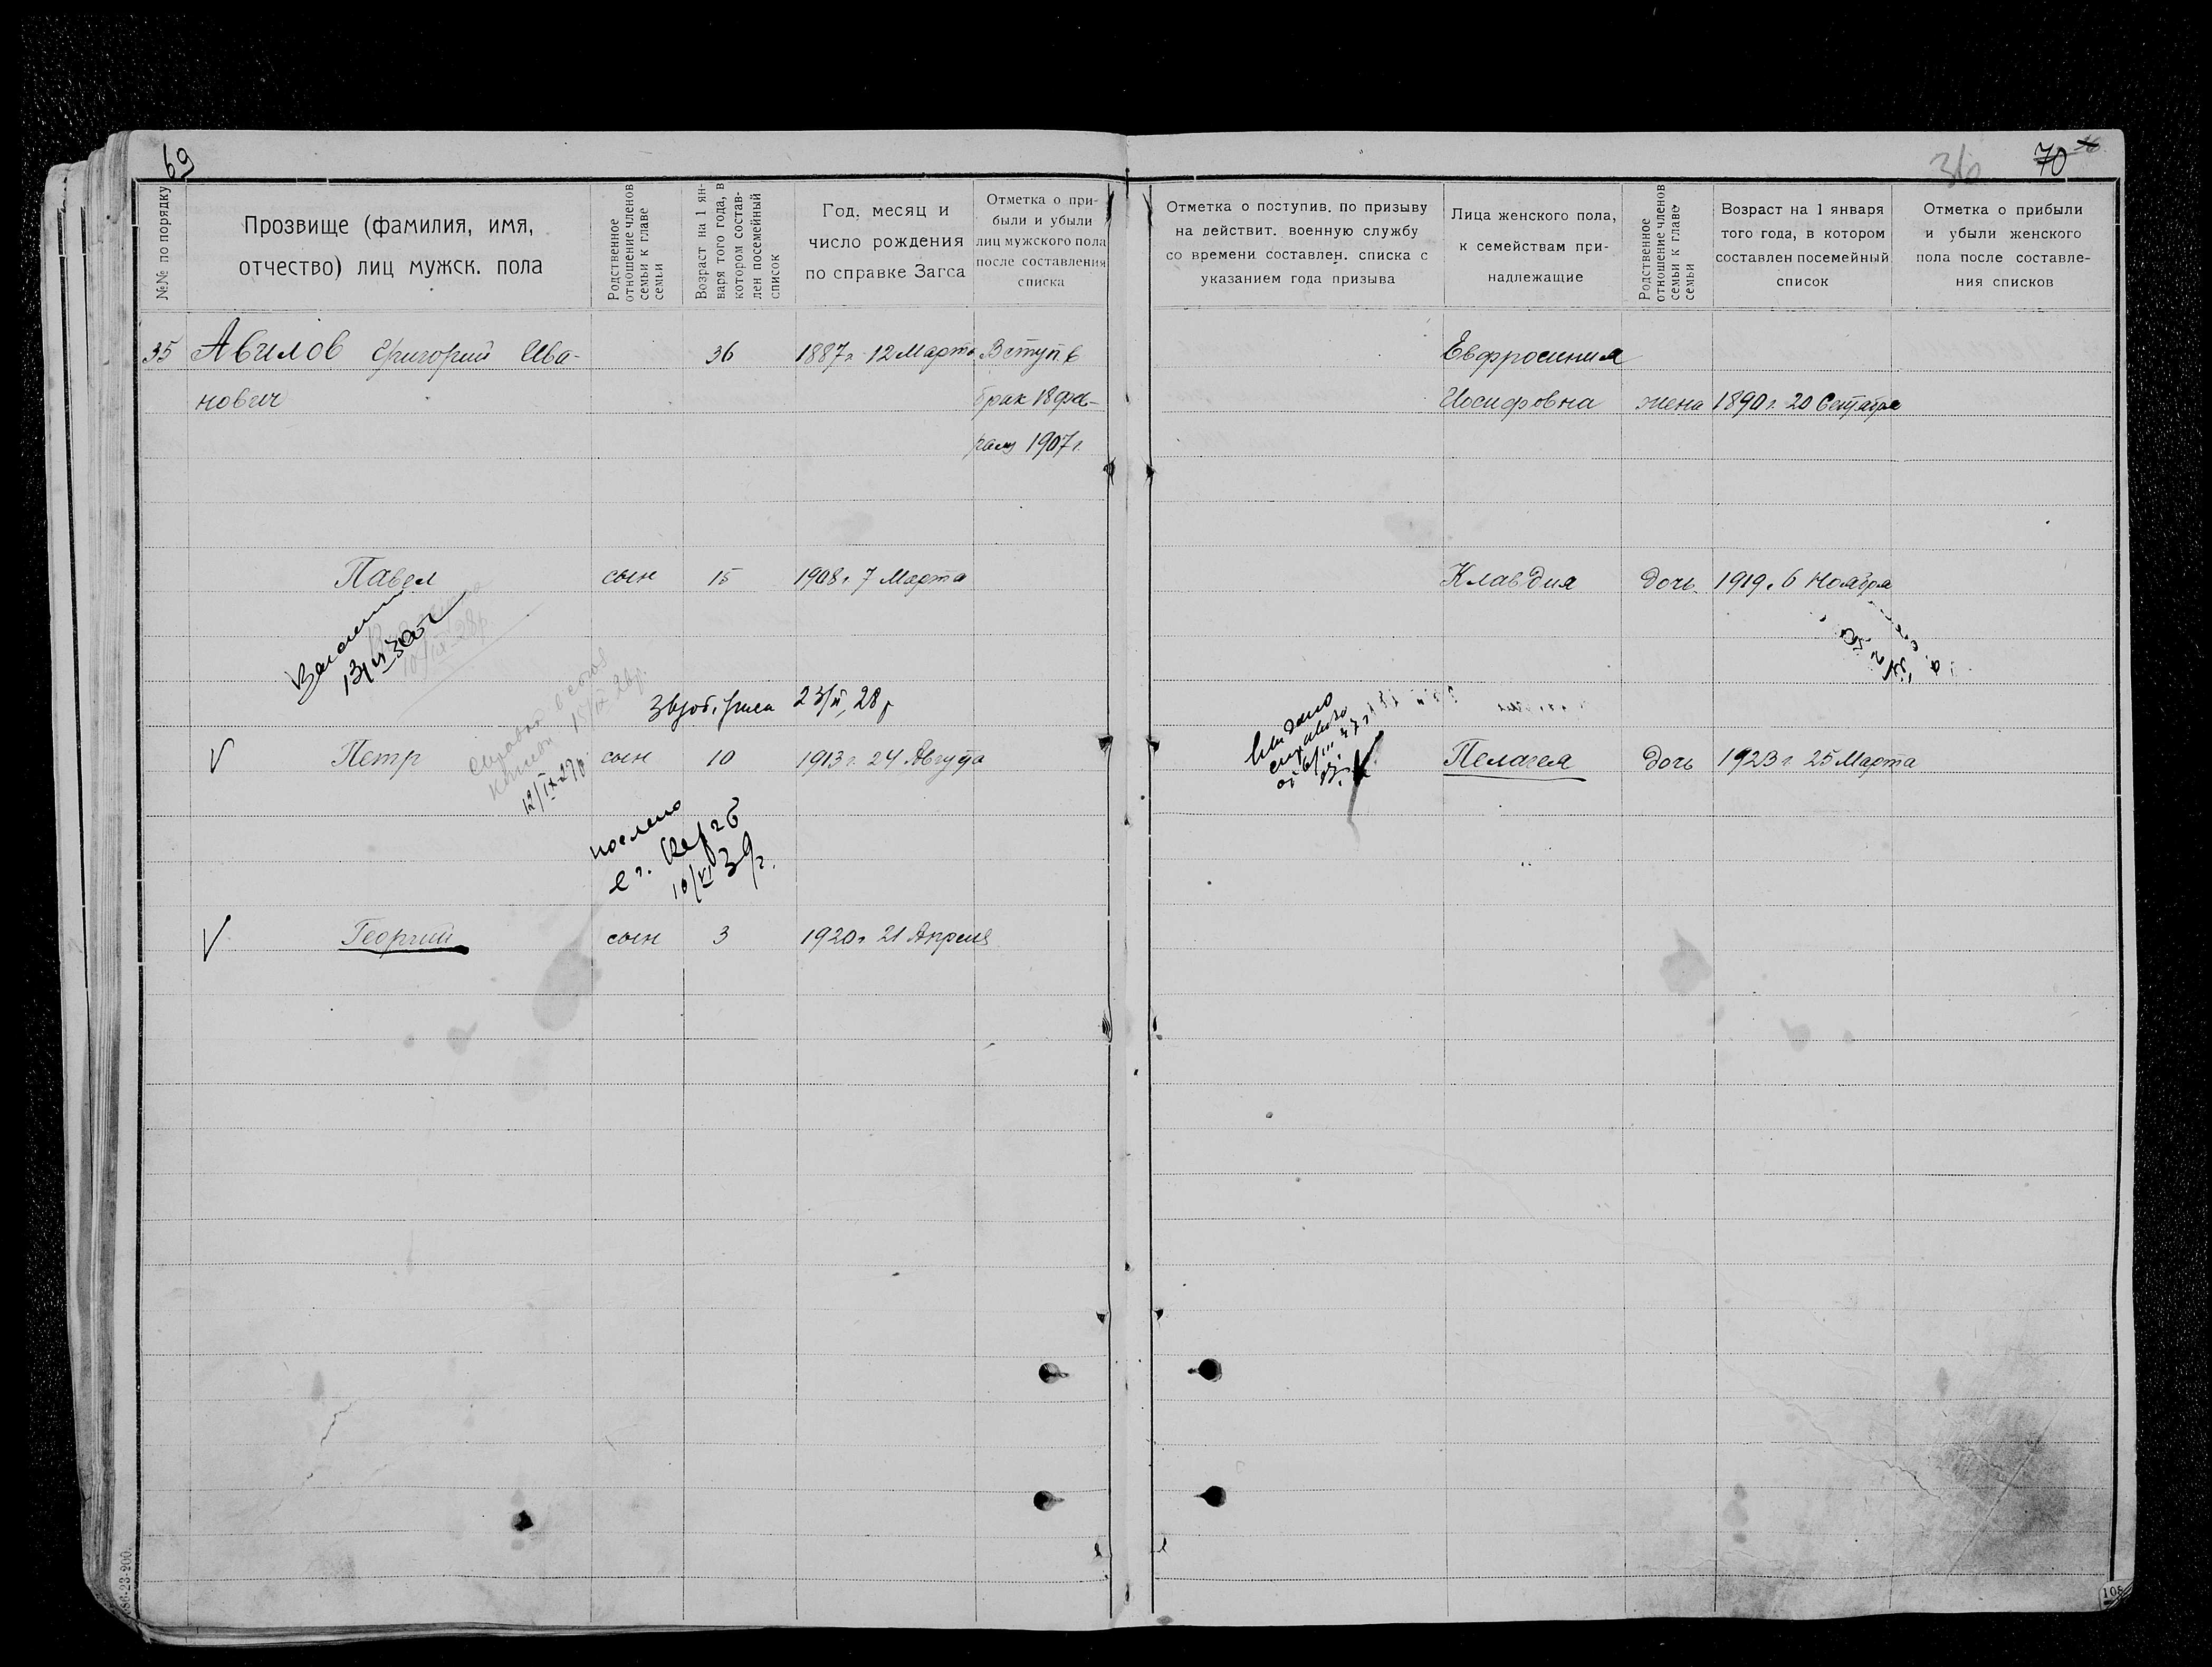 69
№№ по порядку
Прозвище (фамилия, имя,
отчество) лиц мужск. пола
Родственное
отношение членов
семьи к главе
семьи
Возраст на 1 ян-
варя того года, в
котором состав-
лен посемейный
список
Год, месяц и
число рождения
по справке Загса
Отметка о при-
были и убыли
лиц мужского пола
после составления
списка
35 Авилов Григорий Ива- 36 1887 г. 12 Марта Вступ. в
нович брак 18 фев-
1907 г.
Павел сын 15 1908 г. 7 Марта
10/IX-28 р.
23/IV, 28 г
V Петр сын 10 1913 г. 24 Августа
12/IX 29 г.
послано
10/VI 39 г.
V Георгий сын 3 1920 г. 21 Апреля
86-23-200.
36
70
Отметка о поступив. по призыву
на действит. военную службу
со времени составлен. списка с
указанием года призыва
Лица женского пола,
к семействам при-
надлежащие
Родственное
отношение членов
семьи к главе
семьи
Возраст на 1 января
того года, в котором
составлен посемейный
список
Отметка о прибыли
и убыли женского
пола после составле-
ния списков
Евфросиния
Иосифовна жена 1890 г. 20 Сентября
Клавдия дочь 1919 г. 6 Ноября
Пелагея дочь 1923 г. 25 Марта
108